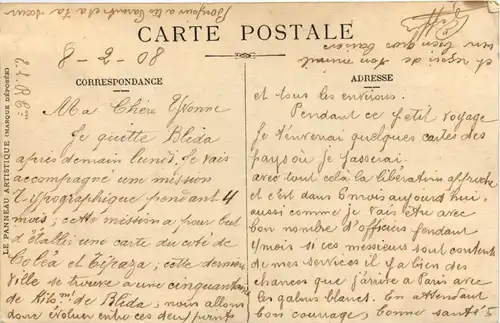 CARTE POSTALE
8-2-08
CORRESPONDANCE
Ma Chère Yvonne
Je quitte Blida
après demain lundi. Je vais
accompagné une mission
Typographique pendant 4
mois; cette mission a pour but
d'établir une carte du coté de
Coléa et Tipaza; cette dernière
ville se trouve a une cinquantaine
de Kilom. de Blida; nous allons
donc évoluer entre ces deux points
ADRESSE
et tous les environs.
Pendant ce petit voyage
je t'enverrai quelques cartes des
pays où je passerai.
avec tout cela la libération approche
et c'est dans 6 mois aujourd'hui,
aussi comme je vais être avec
bon nombre d'officiers pendant
4 mois si ces messieurs sont contents
de mes services il y a bien des
chances que j'arrive a Paris avec
les galons blancs. En attendant
bon courage, bonne santé
et reçois de ton
Bonjour a tes parents et a ta sœur
LE PANNEAU ARTISTIQUE (MARQUE DÉPOSÉE)